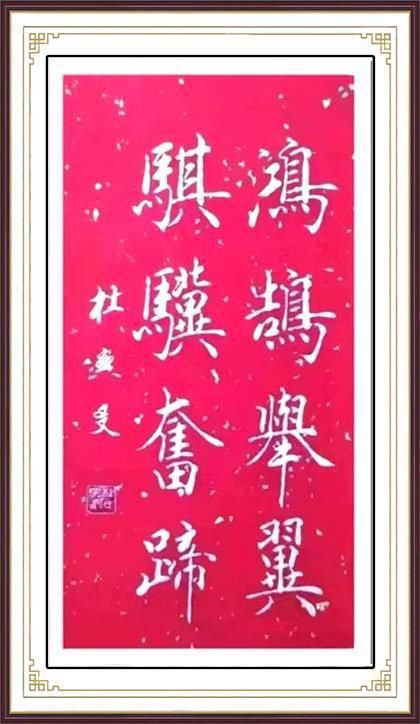 鴻鵠舉翼
騏驥奮蹄